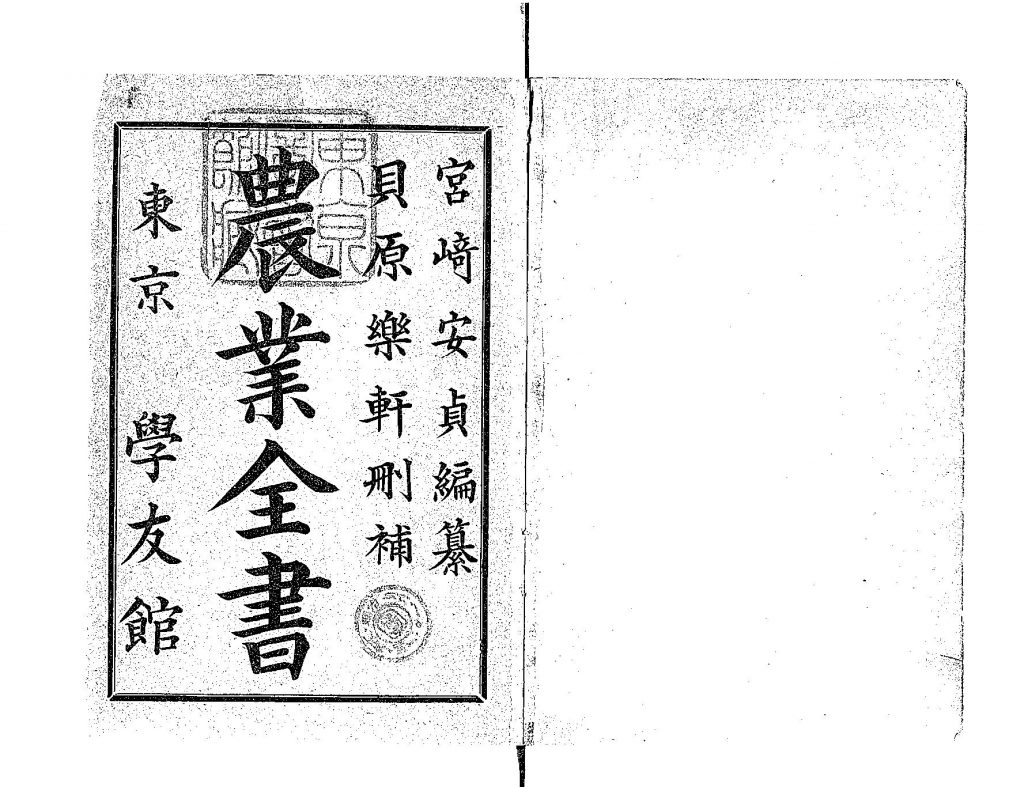 宮﨑安貞編纂
貝原樂軒刪補
農業全書
東京 學友館